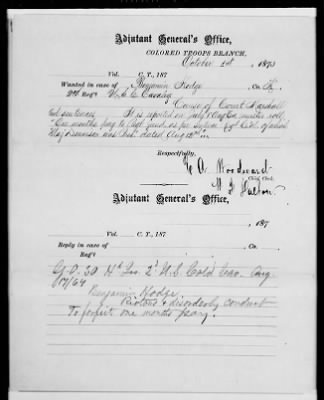 Adjutant General's Office,
COLORED TROOPS BRANCH,
October 1st, 1873
Vol. C. T., 187
Wanted in case of Benjamin Hodge Co. K,
2nd Reg't U.S.C. Cavalry
Cause of Court Martial
and sentence. It is reported on July & Aug
"One months pay to be
dated Aug 12th
Respectfully,
C. A. Woodward
Chief Clerk.
Adjutant General's Office,
, 187
Vol. C. T., 187
Reply in case of Co.
Reg't
G.O. 30 Hd Qrs 2d U.S Cold Cav. Aug
17/64
Benjamin Hodge
Riotous & disorderly conduct
To forfeit one months pay.